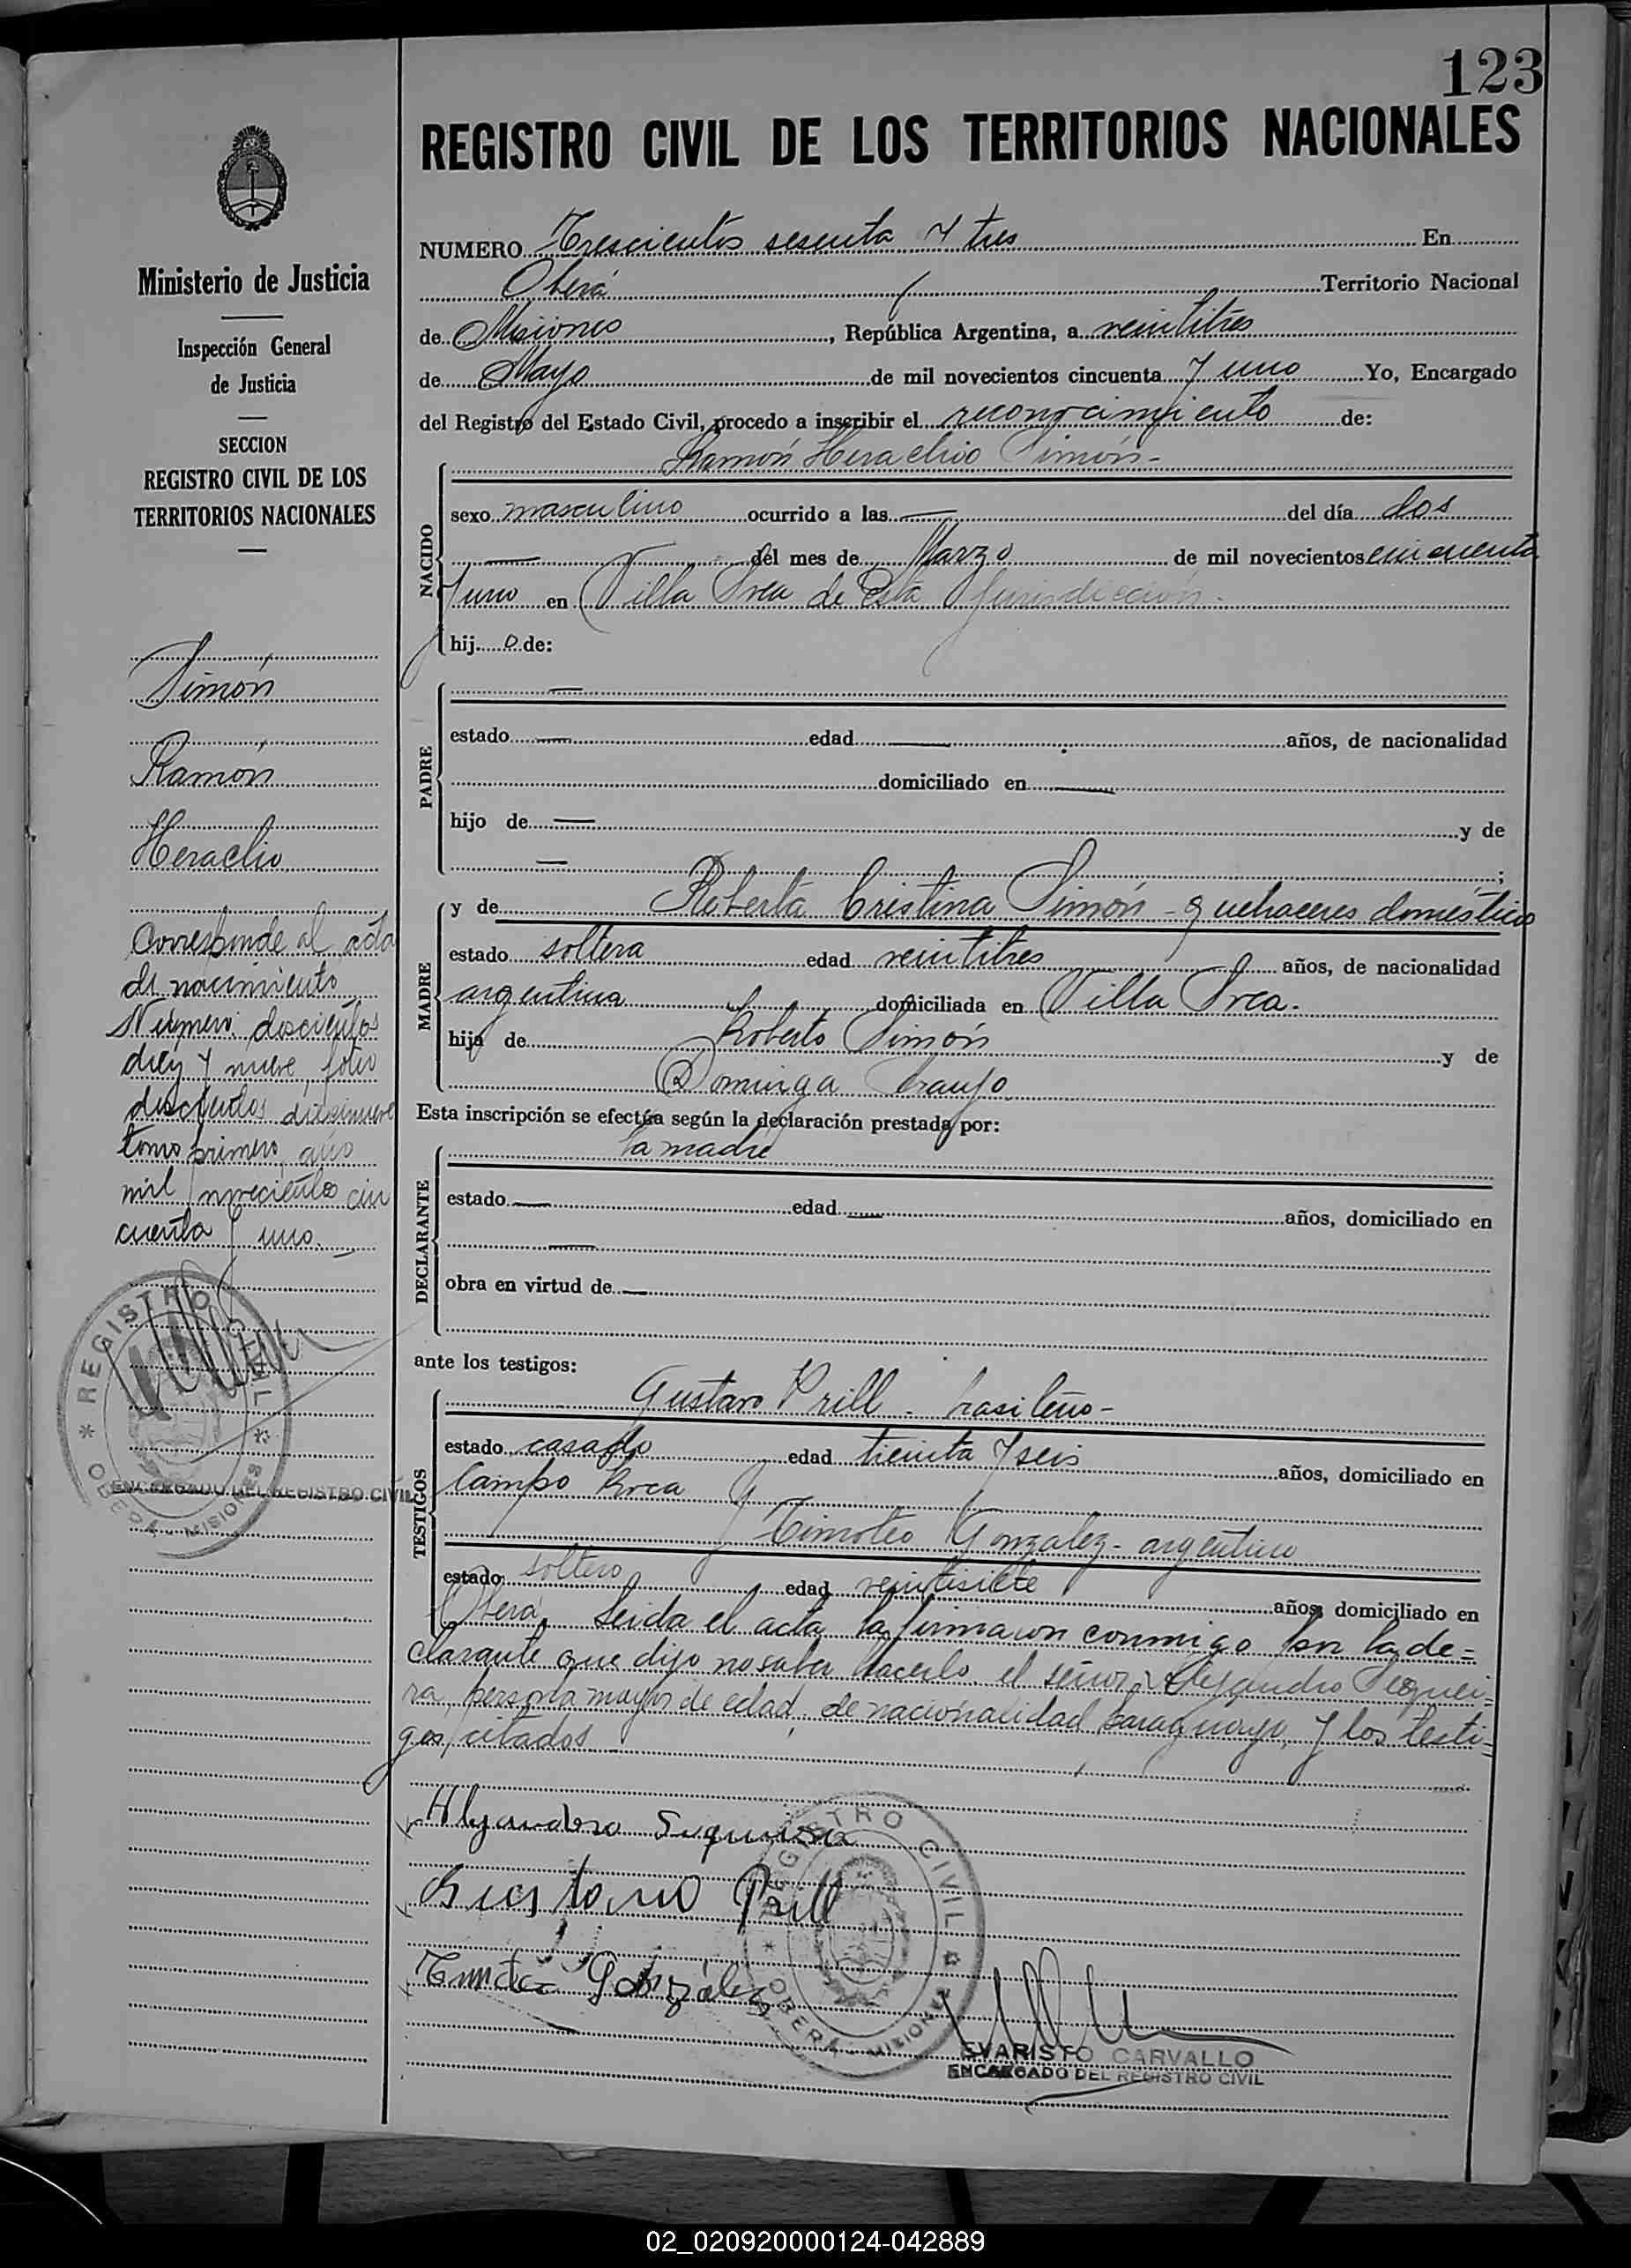 123
REGISTRO CIVIL DE LOS TERRITORIOS NACIONALES
Ministerio de Justicia
Inspección General
de Justicia
SECCION
REGISTRO CIVIL DE LOS
TERRITORIOS NACIONALES
Simón
Ramón
Heraclio
Corresponde al acta
de nacimiento
Número: doscientos
diez y nueve, folio
doscientos diecinueve
tomo primero, año
mil novecientos cin
cuenta y uno.
REGISTRO CIVIL
OBERA - MISIONES
ENCARGADO DEL REGISTRO CIVIL
NUMERO Trescientos sesenta y tres En
Oberá Territorio Nacional
de Misiones, República Argentina, a veintitres
de Mayo de mil novecientos cincuenta y uno Yo, Encargado
del Registro del Estado Civil, procedo a inscribir el reconocimiento de:
NACIDO
Ramón Heraclio Simón-
sexo masculino ocurrido a las — del día dos
— del mes de Marzo de mil novecientos cincuenta
y uno en Villa Svea de esta jurisdicción.
hij o de:
PADRE
—
estado — edad — años, de nacionalidad
domiciliado en —
hijo de — y de
— ;
MADRE
y de Roberta Cristina Simón - quehaceres domésticos
estado soltera edad veintitres años, de nacionalidad
argentina domiciliada en Villa Svea.
hija de Roberto Simón y de
Dominga Araujo
Esta inscripción se efectúa según la declaración prestada por:
DECLARANTE
la madre
estado — edad — años, domiciliado en
—
obra en virtud de —
ante los testigos:
TESTIGOS
Gustavo Prill - brasileño-
estado casado edad treinta y seis años, domiciliado en
Campo Roca y
Timoteo Gonzalez - argentino
estado soltero edad veintisiete años, domiciliado en
Oberá. Leida el acta la firmaron conmigo por la de=
clarante que dijo no saber hacerlo, el señor Alejandro Sequei=
ra, persona mayor de edad, de nacionalidad paraguaya, y los testi=
gos citados
Alejandro Sequeira
Gustavo Prill
Timoteo González
REGISTRO CIVIL
OBERA - MISIONES
EVARISTO CARVALLO
ENCARGADO DEL REGISTRO CIVIL
02_020920000124-042889